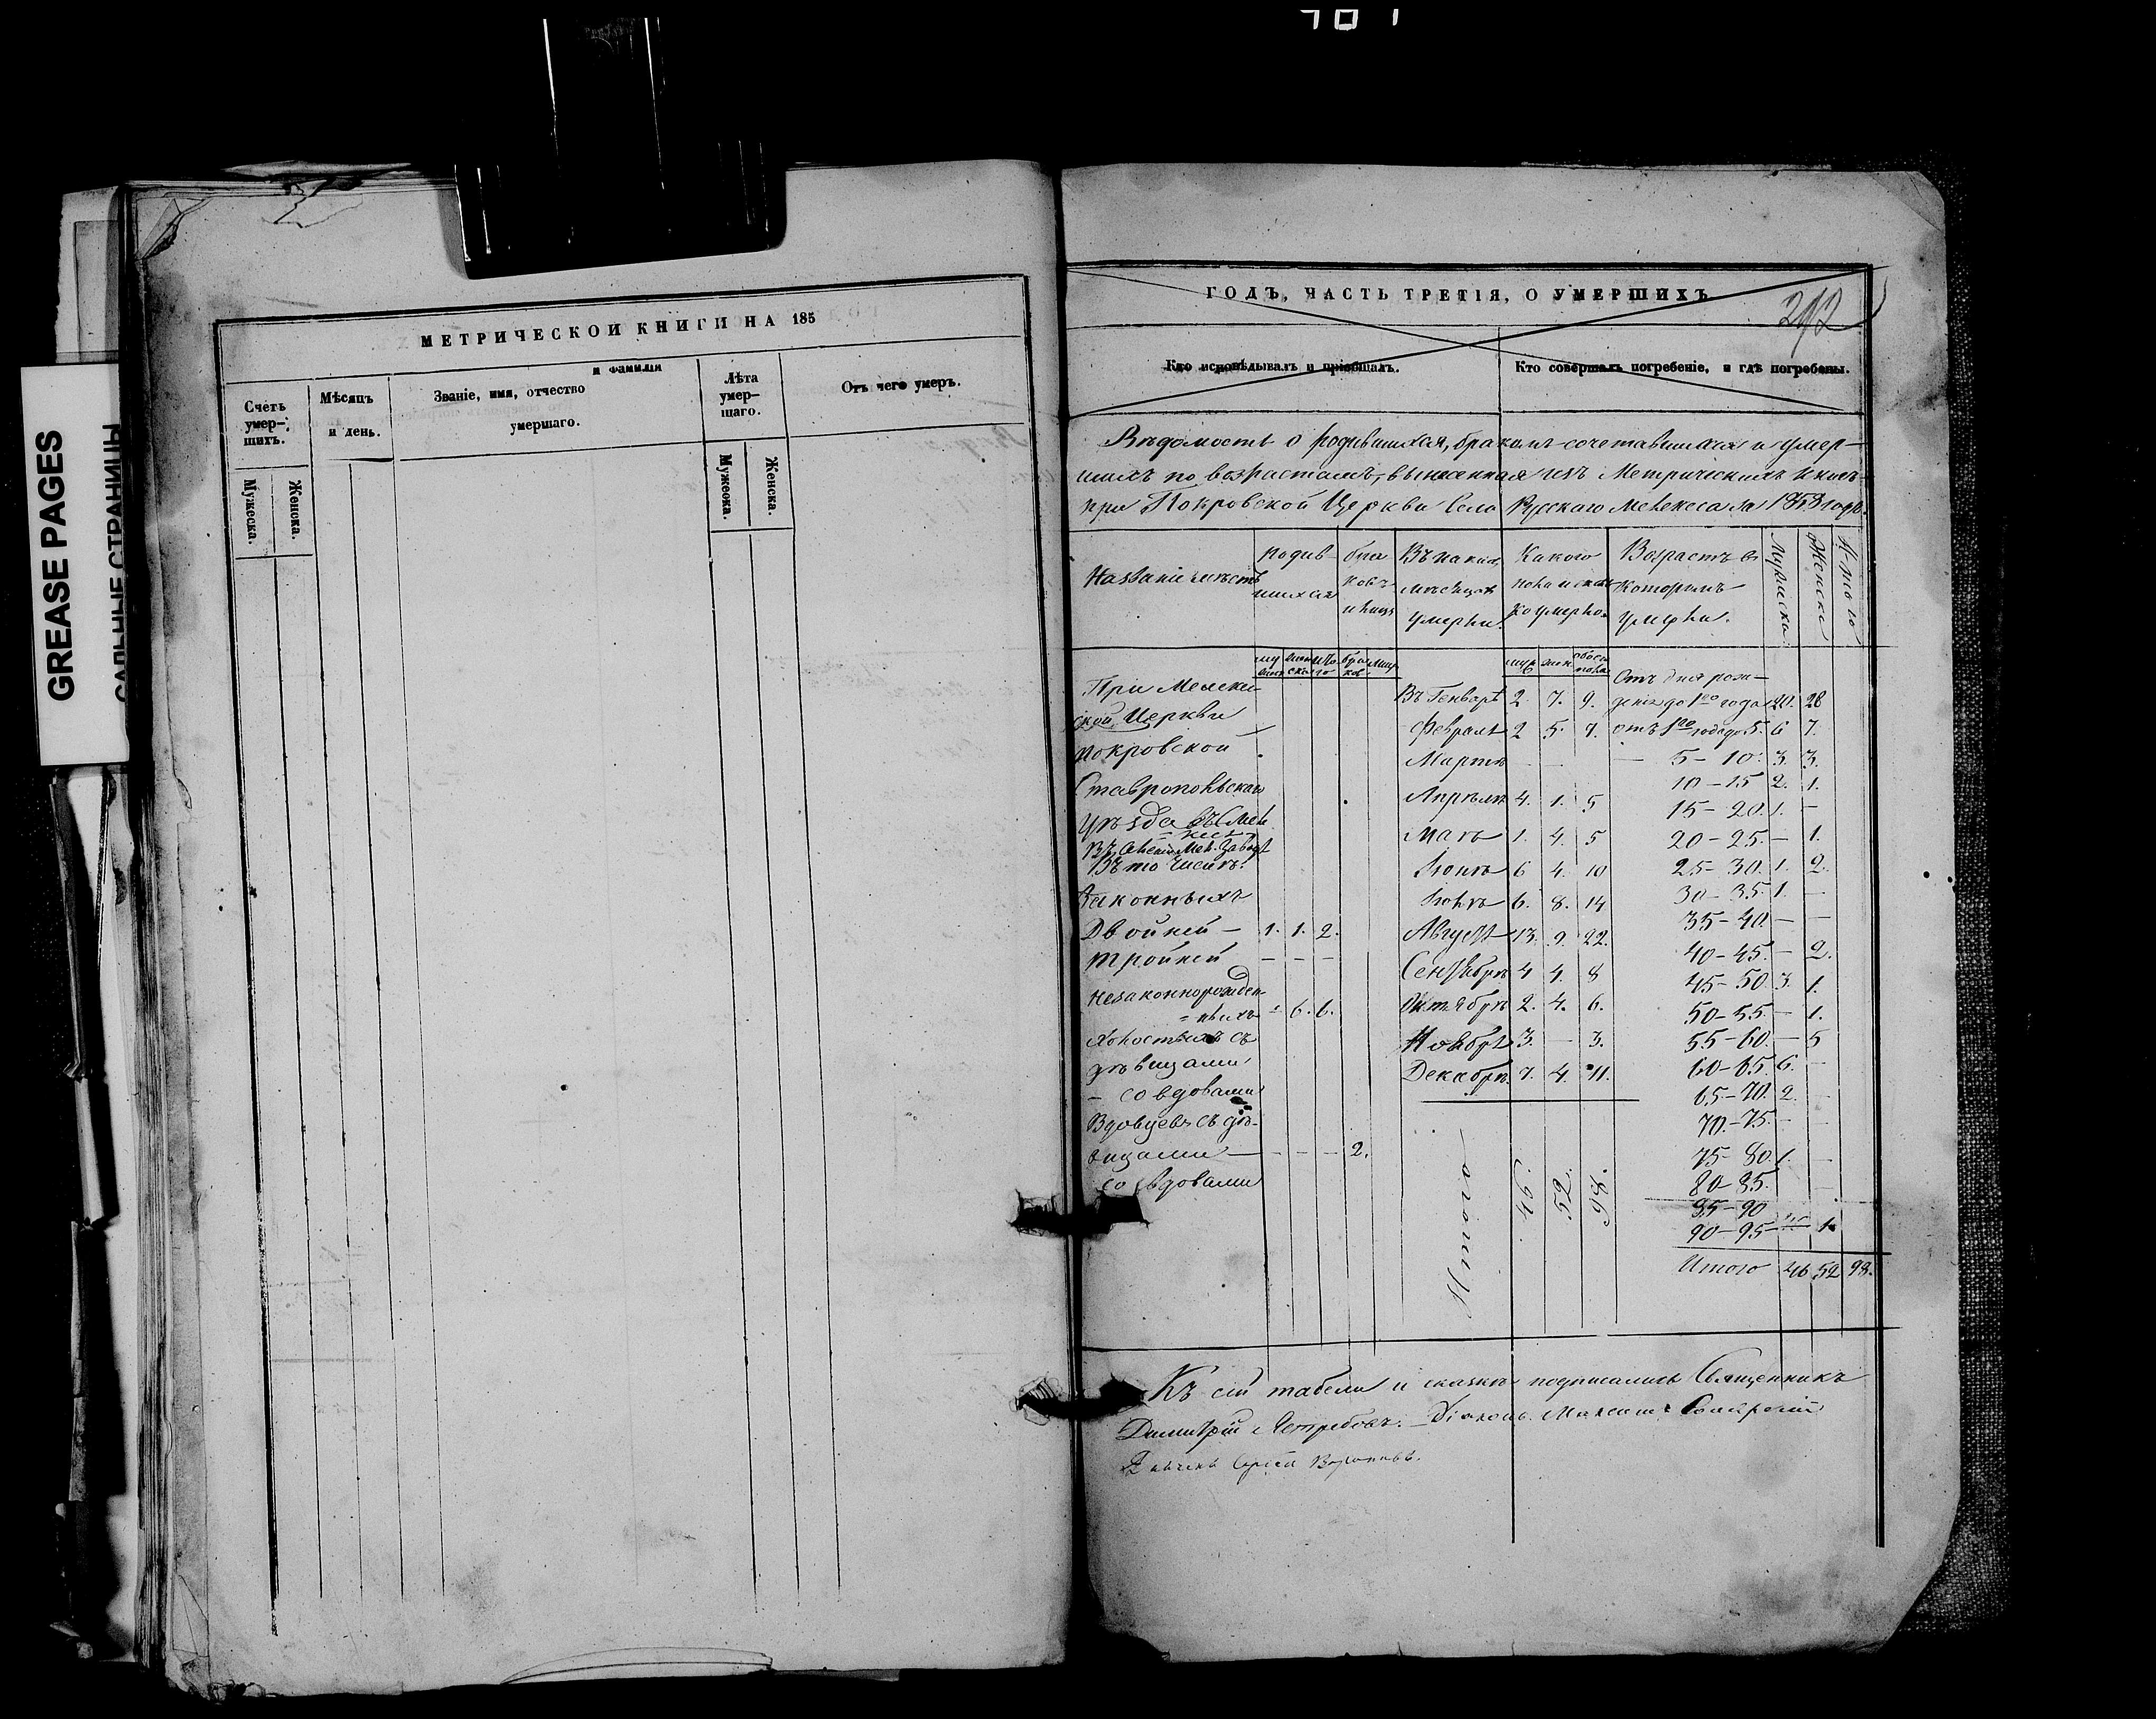 GREASE PAGES
САЛЬНЫЕ СТРАНИЦЫ
МЕТРИЧЕСКОЙ КНИГИ НА 185
Счетъ умер- шихъ.
Мѣсяцъ и день.
Званіе, имя, отчество и фамилія умершаго.
Лѣта умер- шаго.
Отъ чего умеръ.
Мужеска.
Женска.
Мужеска.
Женска.
ГОДЪ, ЧАСТЬ ТРЕТІЯ, О УМЕРШИХЪ.
292
Кто исповѣдывалъ и пріобщалъ.
Кто совершалъ погребеніе, и гдѣ погребены.
Вѣдомость о родившихся, бракомъ сочетавшихся и умер-
шихъ по возрастамъ, изъ Метрическихъ книгъ
при Покровской Церкви Села Русскаго Мелекеса за 1858 годъ.
Названіе мѣстъ
родив- шихся
бра ковъ и лицъ
Въ какихъ мѣсяцахъ умерли.
Какого пола и сколь ко умерло.
Возрастъ въ которомъ умерли.
Мужеска
Женска
Итого
При Мелеке- ской Церкви
Покровской
Ставропольскаго
уѣзда
Въ то числѣ:
Законныхъ
Двойней – 1. 1. 2.
тройней – – –
незаконнорожден- ныхъ – 6. 6.
Холостыхъ съ
дѣвицами
– со вдовами
Вдовцевъ съ дѣ-
вицами – – – – 2.
со вдовами
Въ Генварѣ 2. 7. 9.
Февралѣ 2 5. 7.
Мартѣ – – –
Апрѣлѣ 4. 1. 5
Маѣ 1. 4. 5
Іюнѣ 6 4. 10
Іюлѣ 6. 8. 14
Августѣ 13. 9. 22.
Сентябрѣ 4 4. 8
Октябрѣ 2. 4. 6.
Ноябрѣ 3. – 3.
Декабрѣ 7. 4. 11.
Итого 46. 52. 98.
Отъ дня рож-
денія до 1го года 20. 28
отъ 1го года до 5. 6 7.
– 5 – 10. 3. 3.
10 – 15 2. 1.
15 – 20. 1. –
20 – 25. – 1.
25 – 30. 1. 2.
30 – 35. 1. –
35 – 40. – –
40 – 45. – 2.
45 – 50. 3. 1.
50 – 55. – 1.
55 – 60. – 5
60 – 65. 6. –
65 – 70. 2. –
70 – 75. – –
75 – 80. 1. –
80 – 85. –
85 – 90
90 – 95 – 1.
Итого 46 52 98.
Къ сей табели и сказкѣ подписались Священникъ
Димитрій Ястребовъ. Діаконъ Максимъ
Дьячекъ Сергій